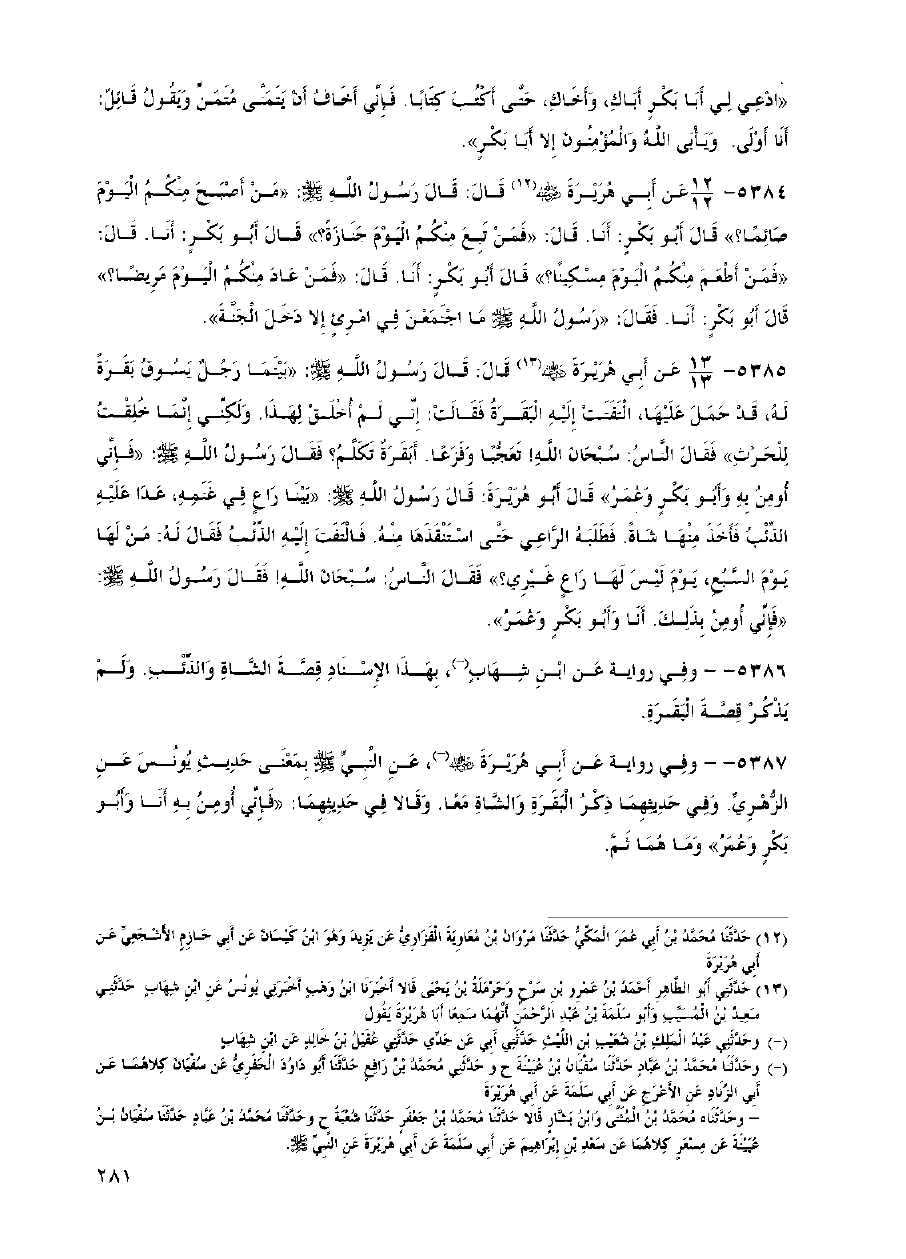 «ادْعِي لِي أَبَا بَكْرٍ أَبَاكِ، وَأَخَاكِ، حَتَّى أَكْتُبَ كِتَابًا. فَإِنِّي أَخَافُ أَنْ يَتَمَنَّى مُتَمَنٍّ وَيَقُولُ قَائِلٌ:
أَنَا أَوْلَى. وَيَأْبَى اللَّهُ وَالْمُؤْمِنُونَ إِلا أَبَا بَكْرٍ».
٥٣٨٤- ١٢/١٢ عَن أَبِي هُرَيْرَةَ ﷺ(١٢) قَالَ: قَالَ رَسُولُ اللَّهِ ﷺ: «مَنْ أَصْبَحَ مِنْكُمُ الْيَوْمَ
صَائِمًا؟» قَالَ أَبُو بَكْرٍ: أَنَا. قَالَ: «فَمَنْ تَبِعَ مِنْكُمُ الْيَوْمَ جَنَازَةً؟» قَالَ أَبُو بَكْرٍ: أَنَا. قَالَ:
«فَمَنْ أَطْعَمَ مِنْكُمُ الْيَوْمَ مِسْكِينًا؟» قَالَ أَبُو بَكْرٍ: أَنَا. قَالَ: «فَمَنْ عَادَ مِنْكُمُ الْيَوْمَ مَرِيضًا؟»
قَالَ أَبُو بَكْرٍ: أَنَا. فَقَالَ: «رَسُولُ اللَّهِ ﷺ مَا اجْتَمَعْنَ فِي امْرِئٍ إِلا دَخَلَ الْجَنَّةَ».
٥٣٨٥- ١٣/١٣ عَن أَبِي هُرَيْرَةَ (١٣) قَالَ: قَالَ رَسُولُ اللَّهِ ﷺ: «بَيْنَمَا رَجُلٌ يَسُوقُ بَقَرَةً
لَهُ، قَدْ حَمَلَ عَلَيْهَا، الْتَفَتَتْ إِلَيْهِ الْبَقَرَةُ فَقَالَتْ: إِنِّي لَمْ أُخْلَقْ لِهَذَا. وَلَكِنِّي إِنَّمَا خُلِقْتُ
لِلْحَرْثِ» فَقَالَ النَّاسُ: سُبْحَانَ اللَّهِ! تَعَجُّبًا وَفَزَعًا. أَبَقَرَةٌ تَكَلَّمُ؟ فَقَالَ رَسُولُ اللَّهِ ﷺ: «فَإِنِّي
أُومِنُ بِهِ وَأَبُو بَكْرٍ وَعُمَرُ» قَالَ أَبُو هُرَيْرَةَ: قَالَ رَسُولُ اللَّهِ ﷺ: «بَيْنَا رَاعٍ فِي غَنَمِهِ، عَدَا عَلَيْهِ
الذِّئْبُ فَأَخَذَ مِنْهَا شَاةً. فَطَلَبَهُ الرَّاعِي حَتَّى اسْتَنْقَذَهَا مِنْهُ. فَالْتَفَتَ إِلَيْهِ الذِّئْبُ فَقَالَ لَهُ: مَنْ لَهَا
يَوْمَ السَّبُعِ، يَوْمَ لَيْسَ لَهَا رَاعٍ غَيْرِي؟» فَقَالَ النَّاسُ: سُبْحَانَ اللَّهِ! فَقَالَ رَسُولُ اللَّهِ ﷺ:
«فَإِنِّي أُومِنُ بِذَلِكَ. أَنَا وَأَبُو بَكْرٍ وَعُمَرُ».
٥٣٨٦- - وفِي رواية عَن ابْنِ شِهَابٍ(-)، بِهَذَا الإِسْنَادِ قِصَّةَ الشَّاةِ وَالذِّئْبِ. وَلَمْ
يَذْكُرْ قِصَّةَ الْبَقَرَةِ.
٥٣٨٧- - وفِي رواية عَن أَبِي هُرَيْرَةَ (-)، عَنِ النَّبِيِّ ﷺ بِمَعْنَى حَدِيثِ يُونُسَ عَنِ
الزُّهْرِيِّ. وَفِي حَدِيثِهِمَا ذِكْرُ الْبَقَرَةِ وَالشَّاةِ مَعًا. وَقَالا فِي حَدِيثِهِمَا: «فَإِنِّي أُومِنُ بِهِ أَنَا وَأَبُو
بَكْرٍ وَعُمَرُ» وَمَا هُمَا ثَمَّ.
(١٢) حَدَّثَنَا مُحَمَّدُ بْنُ أَبِي عُمَرَ الْمَكِّيُّ حَدَّثَنَا مَرْوَانُ بْنُ مُعَاوِيَةَ الْفَزَارِيُّ عَن يَزِيدَ وَهُوَ ابْنُ كَيْسَانَ عَن أَبِي حَازِمٍ الأَشْجَعِيِّ عَن
أَبِي هُرَيْرَةَ
(١٣) حَدَّثَنِي أَبُو الطَّاهِرِ أَحْمَدُ بْنُ عَمْرِو بْنِ سَرْحٍ وَحَرْمَلَةُ بْنُ يَحْيَى قَالا أَخْبَرَنَا ابْنُ وَهْبٍ أَخْبَرَنِي يُونُسُ عَنِ ابْنِ شِهَابٍ حَدَّثَنِي
سَعِيدُ بْنُ الْمُسَيَّبِ وَأَبُو سَلَمَةَ بْنُ عَبْدِ الرَّحْمَنِ أَنَّهُمَا سَمِعَا أَبَا هُرَيْرَةَ يَقُولُ
(-) وحَدَّثَنِي عَبْدُ الْمَلِكِ بْنُ شُعَيْبِ بْنِ اللَّيْثِ حَدَّثَنِي أَبِي عَن جَدِّي حَدَّثَنِي عُقَيْلُ بْنُ خَالِدٍ عَن ابْنِ شِهَابٍ
(-) وحَدَّثَنَا مُحَمَّدُ بْنُ عَبَّادٍ حَدَّثَنَا سُفْيَانُ بْنُ عُيَيْنَةَ ح و حَدَّثَنِي مُحَمَّدُ بْنُ رَافِعٍ حَدَّثَنَا أَبُو دَاوُدَ الْحَفَرِيُّ عَن سُفْيَانَ كِلاهُمَا عَن
أَبِي الزِّنَادِ عَن الأَعْرَجِ عَن أَبِي سَلَمَةَ عَن أَبِي هُرَيْرَةَ
- وحَدَّثَنَاه مُحَمَّدُ بْنُ الْمُثَنَّى وَابْنُ بَشَّارٍ قَالا حَدَّثَنَا مُحَمَّدُ بْنُ جَعْفَرٍ حَدَّثَنَا شُعْبَةُ ح وحَدَّثَنَا مُحَمَّدُ بْنُ عَبَّادٍ حَدَّثَنَا سُفْيَانُ بْنُ
عُيَيْنَةَ عَن مِسْعَرٍ كِلاهُمَا عَن سَعْدِ بْنِ إِبْرَاهِيمَ عَن أَبِي سَلَمَةَ عَن أَبِي هُرَيْرَةَ عَن النَّبِيِّ ﷺ.
٢٨١